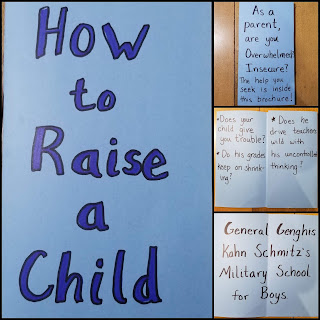 How
to
Raise
a
Child
As a
parent,
are you
Overwhelmed?
Insecure?
The help you
seek is inside
this brochure!
• Does your
child give
you trouble?
• Do his grades
keep on shrink-
ing?
• Does he
drive teachers
wild with
his uncontrolled
thinking?
General Genghis
Kahn Schmitz's
Military School
for Boys